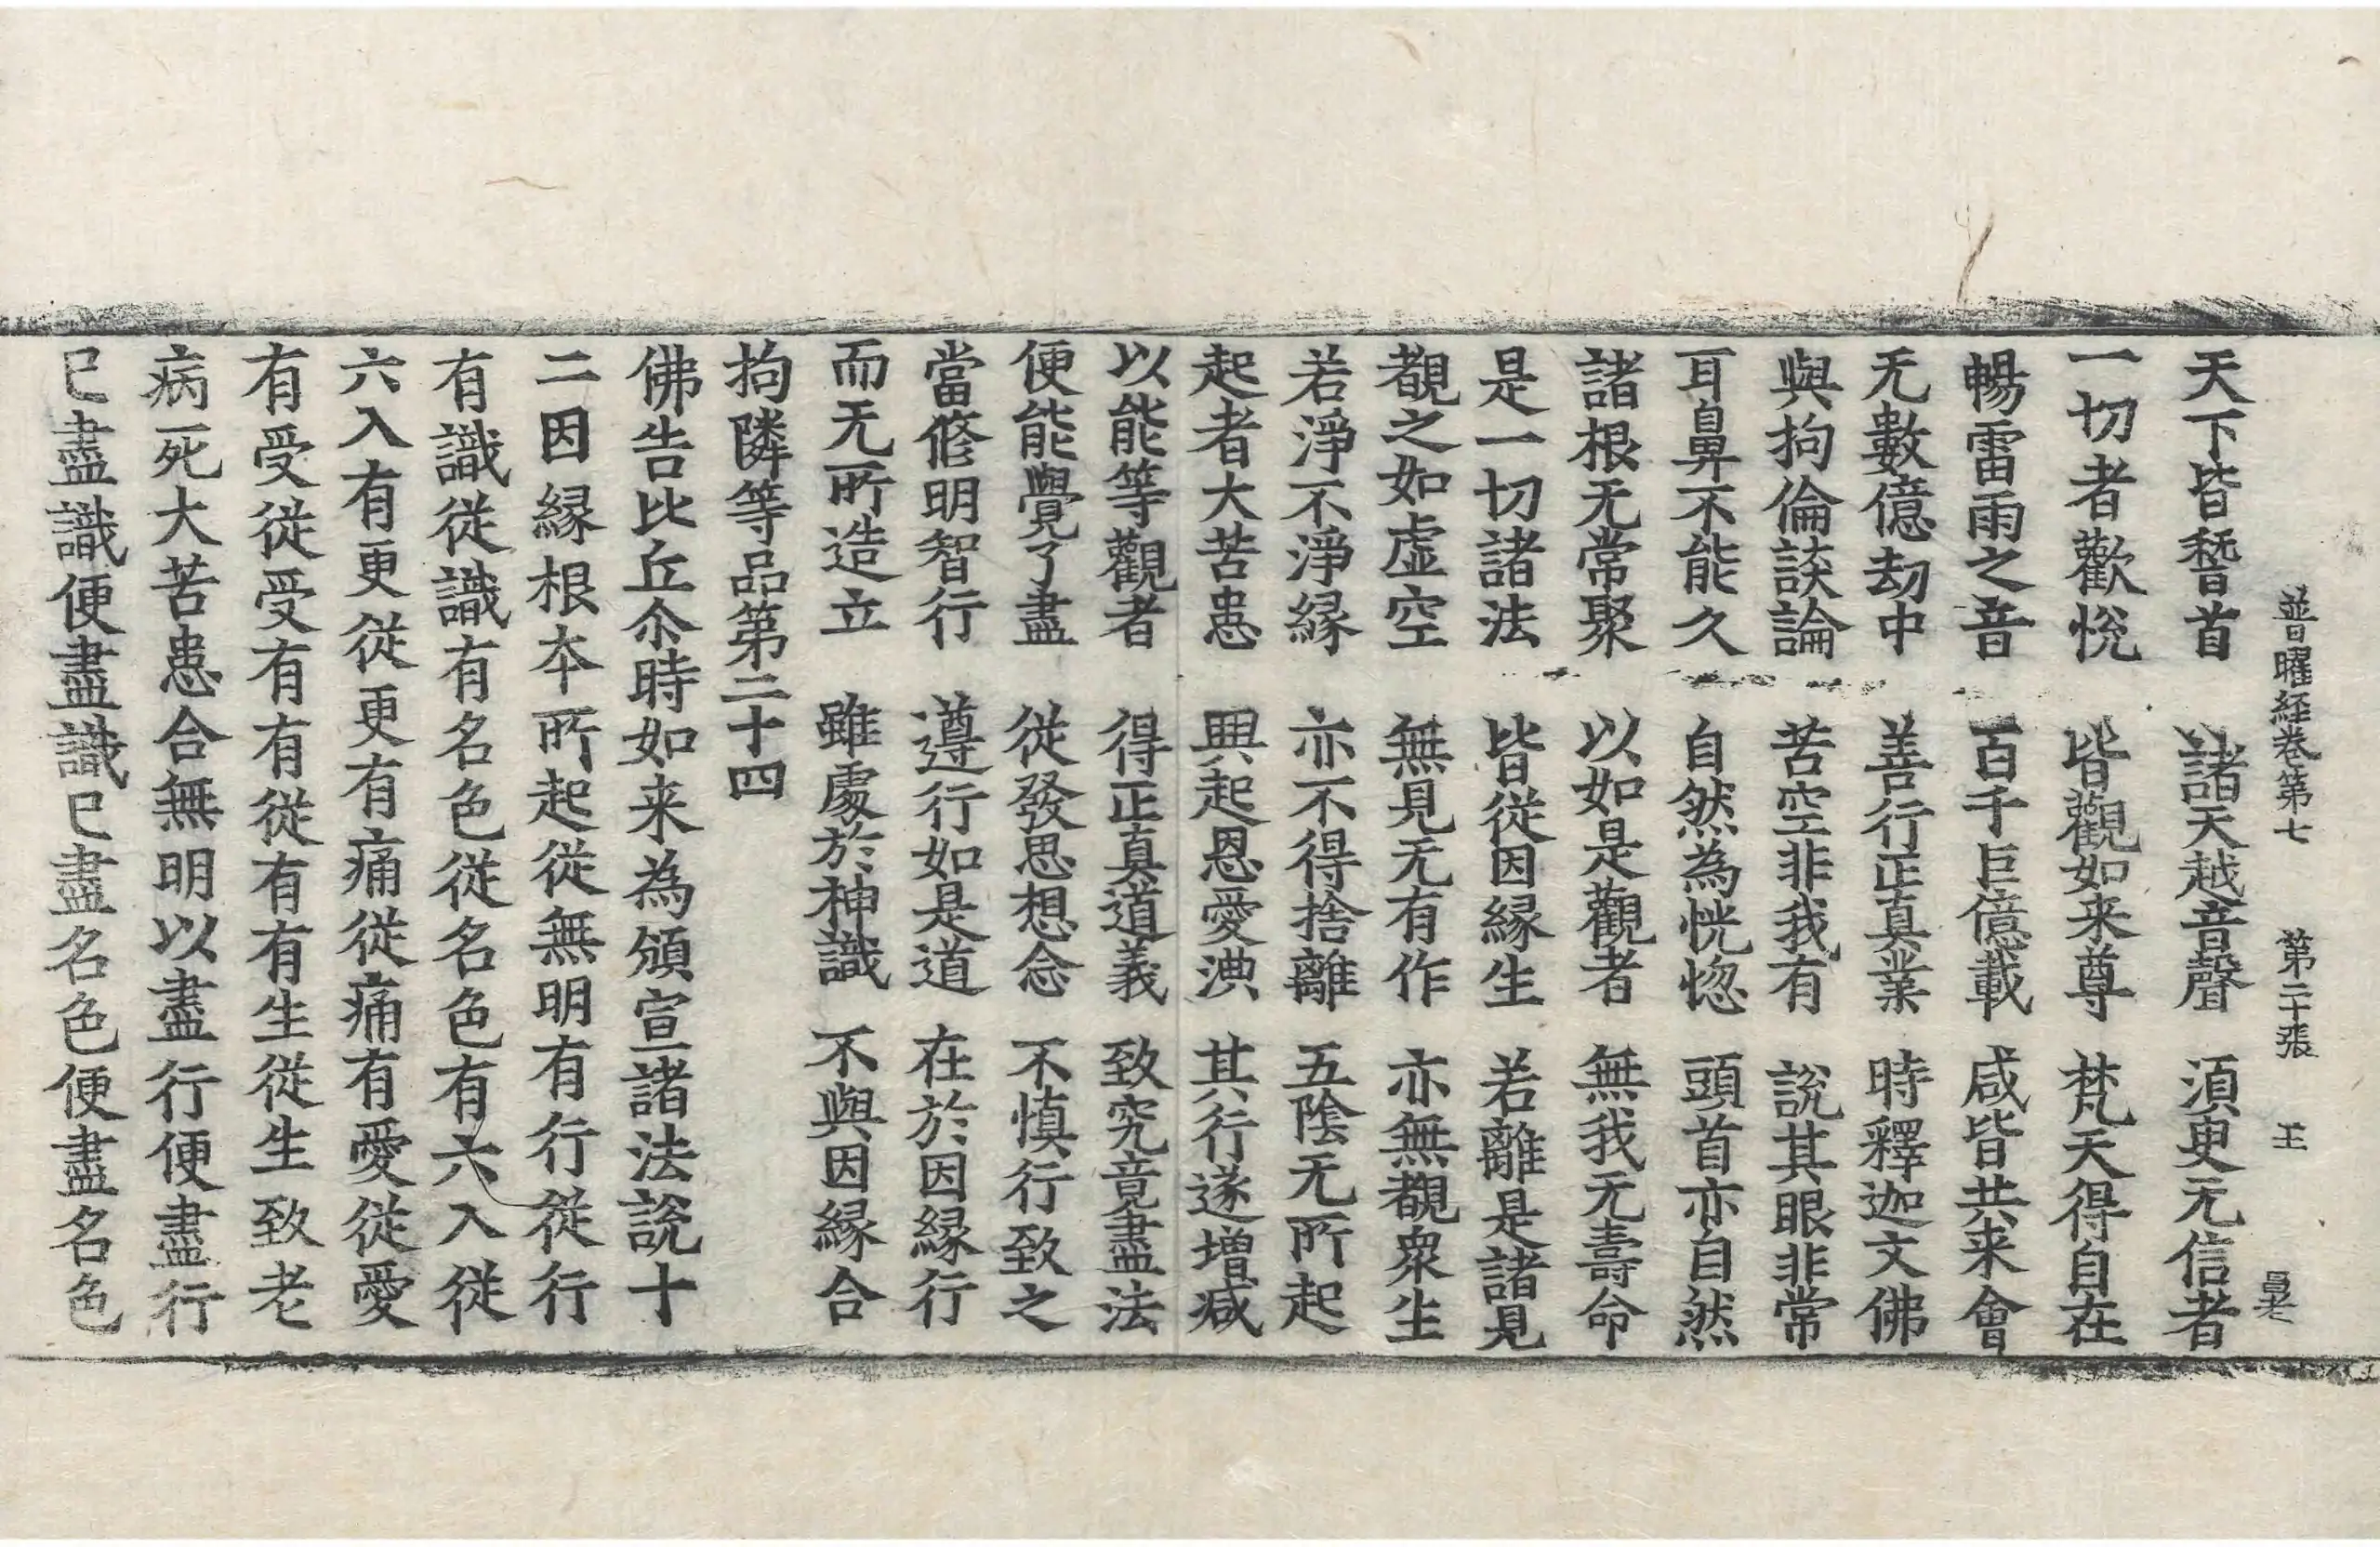 普曜經卷第七 第二十張 王
天下皆稽首 諸天越音聲 須臾无信者
一切者歡悅 皆觀如来尊 梵天得自在
暢雷雨之音 百千巨億載 咸皆共来會
无數億劫中 善行正真業 時釋迦文佛
與拘倫談論 苦空非我有 說其眼非常
耳鼻不能久 自然為恍惚 頭首亦自然
諸根无常聚 以如是觀者 無我无壽命
是一切諸法 皆從因緣生 若離是諸見
覩之如虛空 無見无有作 亦無覩衆生
若淨不淨緣 亦不得捨離 五陰无所起
起者大苦患 興起恩愛𣼛 其行遂增減
以能等觀者 得正真道義 致究竟盡法
便能覺了盡 從發思想念 不慎行致之
當修明智行 遵行如是道 在於因緣行
而无所造立 雖處於神識 不與因緣合
拘隣等品第二十四
佛告比丘尒時如来為頒宣諸法說十
二因緣根本所起從無明有行從行
有識從識有名色從名色有六入從
六入有更從更有痛從痛有愛從愛
有受從受有有從有有生從生致老
病死大苦患合無明以盡行便盡行
已盡識便盡識已盡名色便盡名色